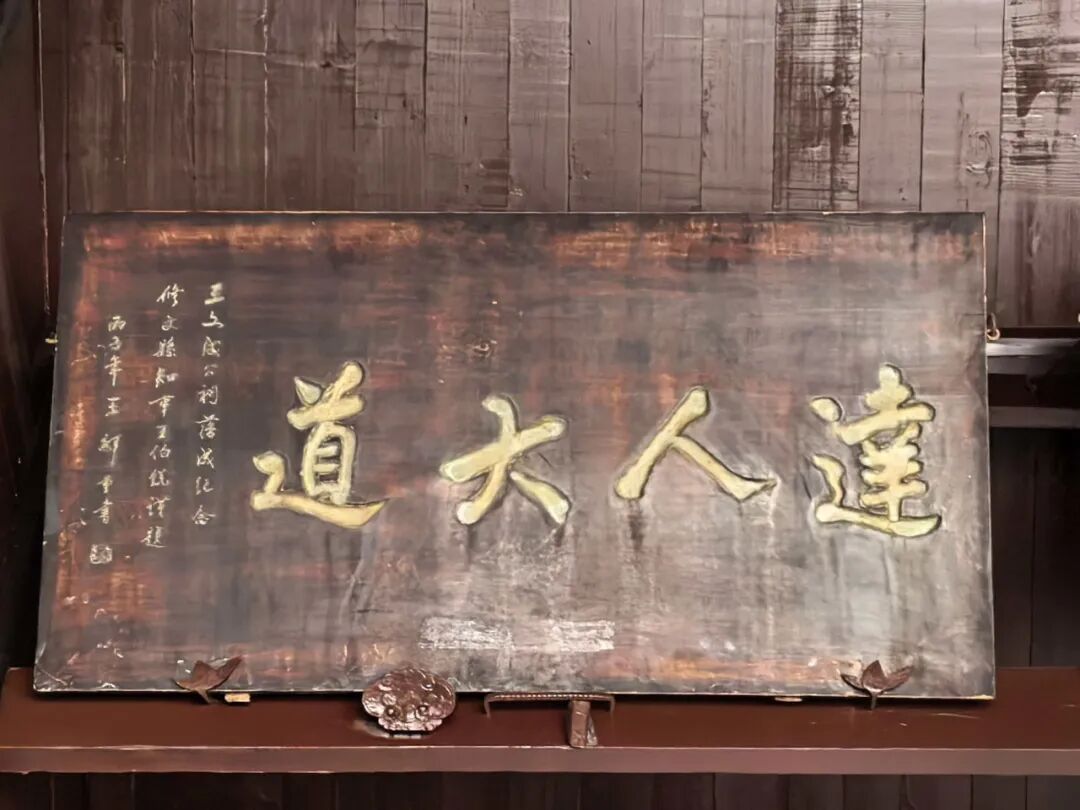 達人大道
王文成公祠落成纪念
修文縣知事王伯銳谨題
丙子年王 重書